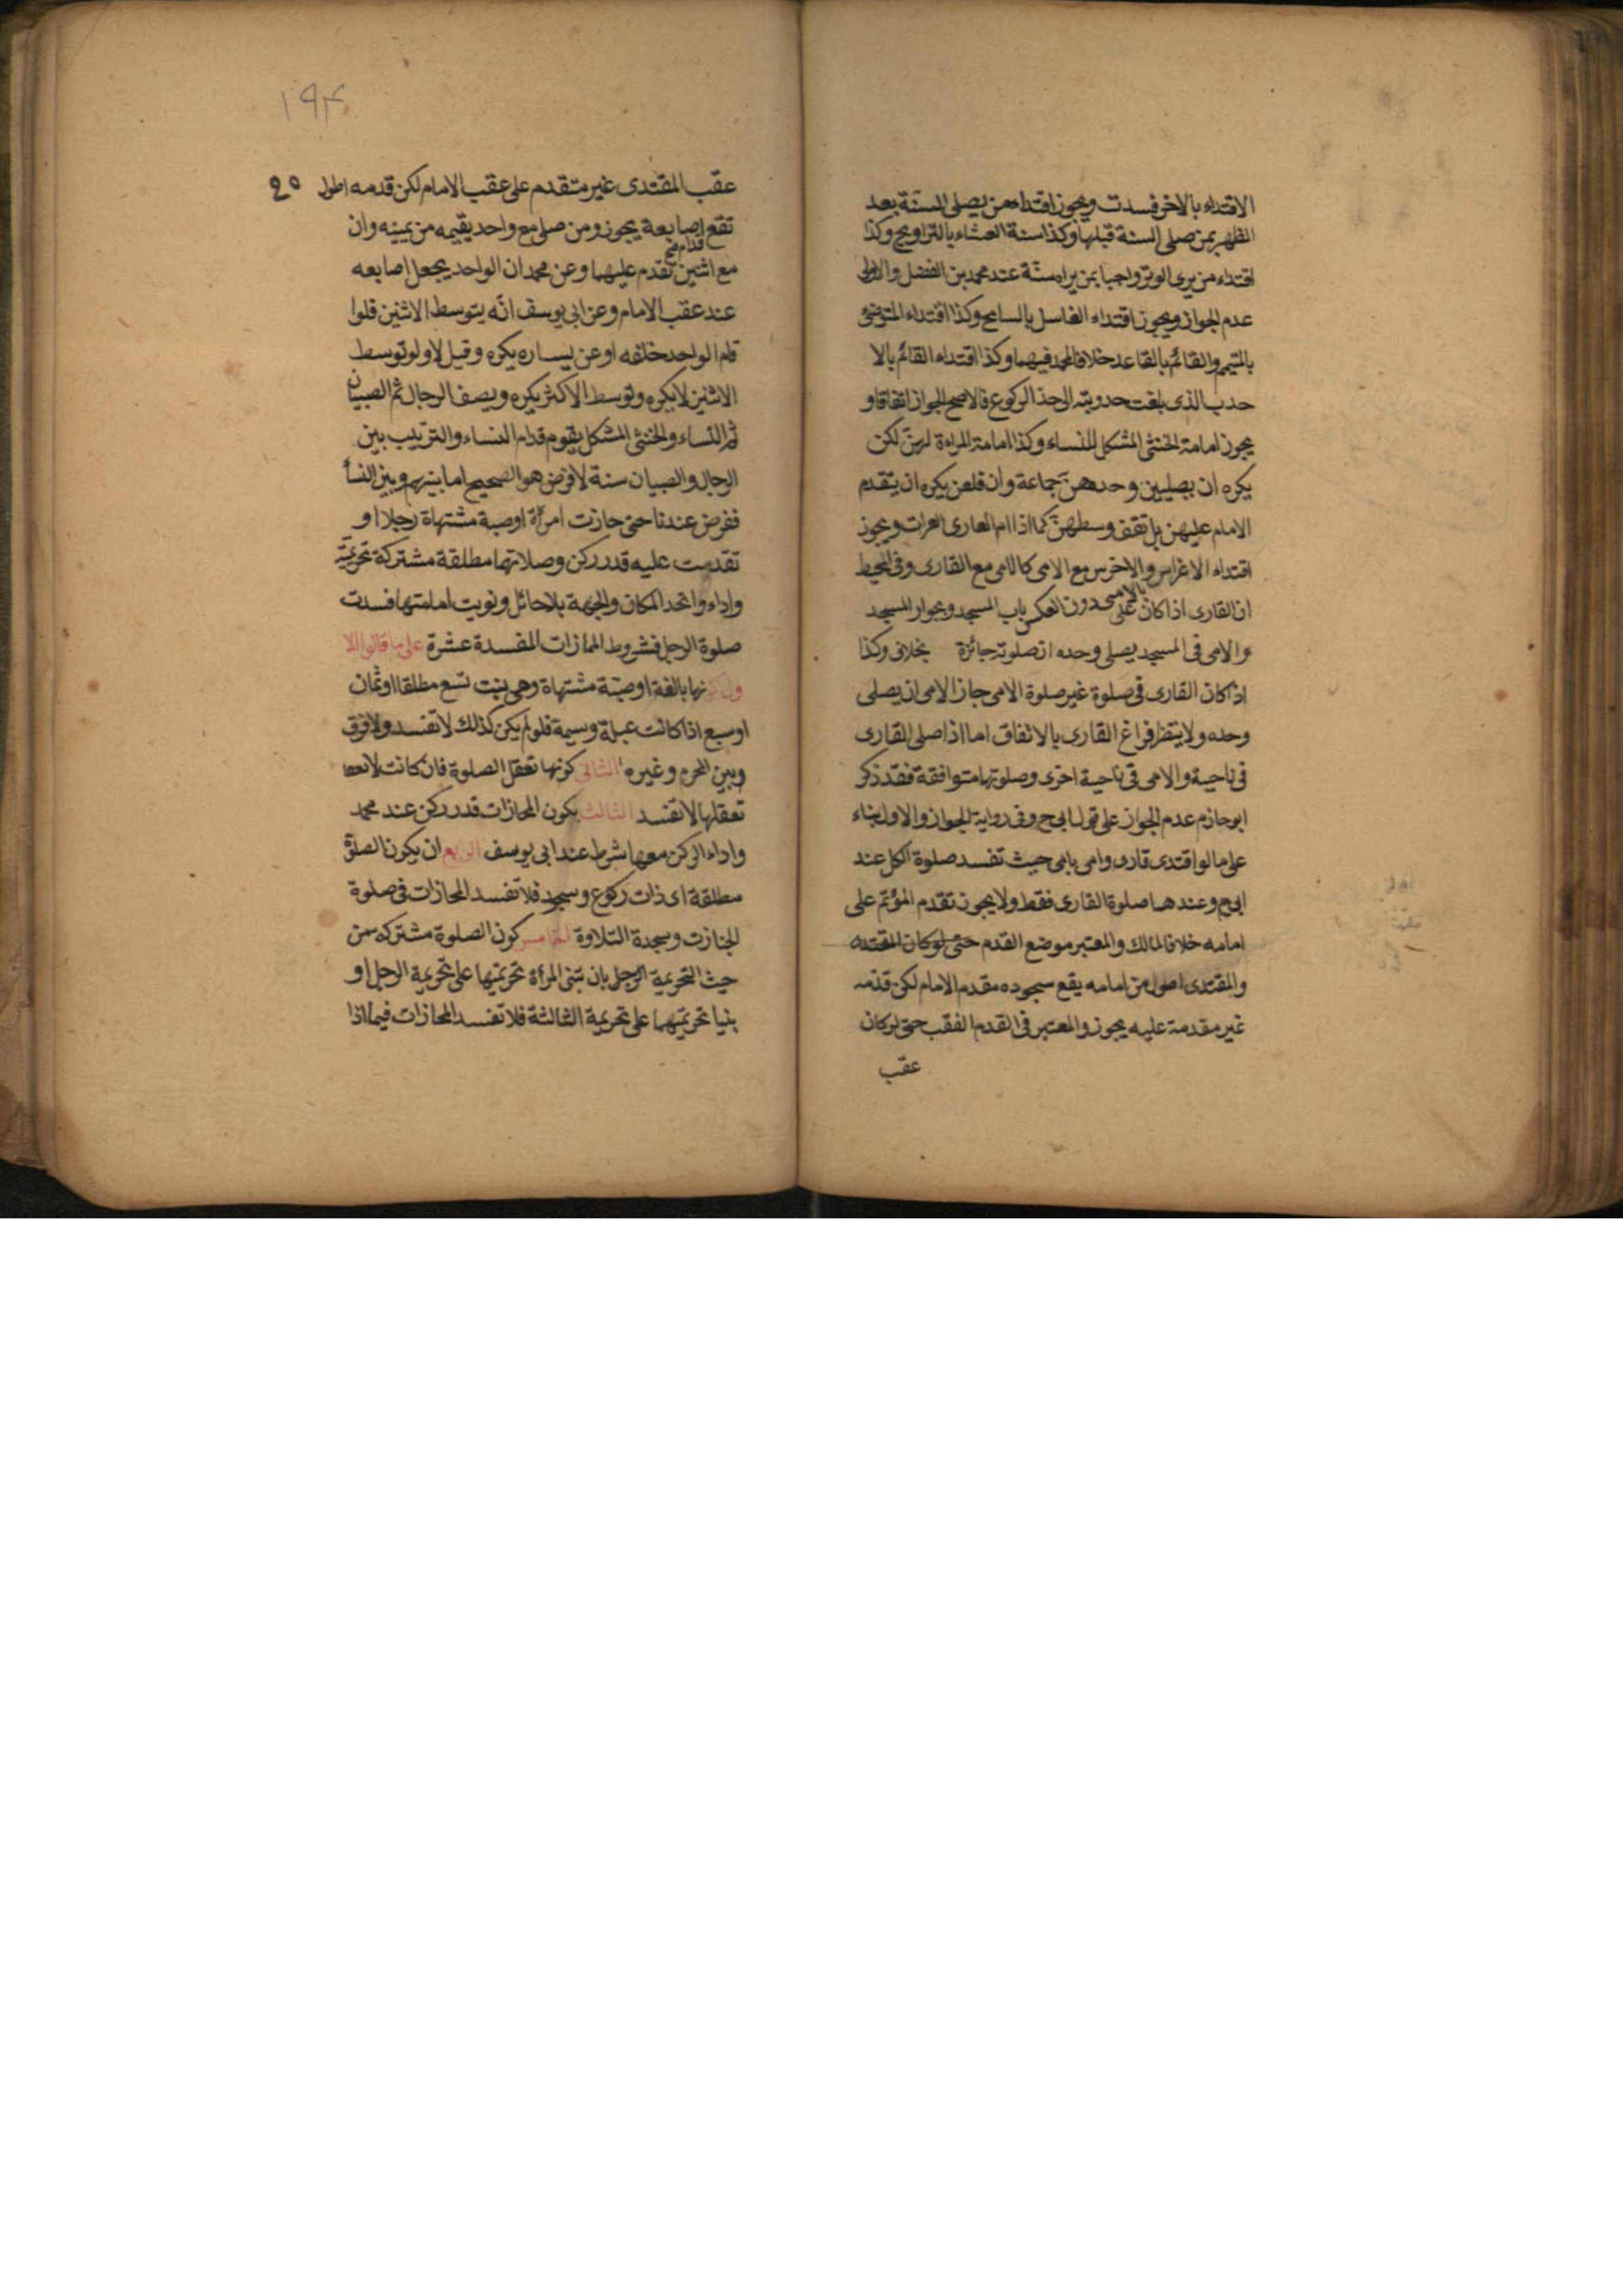 الاقتداء بالاخر فسدت ويجوز اقتداء من يصلى السنة بعد
الظهر بمن صلى السنة قبلها وكذا سنة العشاء بالتراويح وكذا
اقتداء من يرى الوتر واجبا بمن يراه سنة عند محمد بن الفضل والاولى
عدم الجواز ويجوز اقتداء الغاسل بالماسح وكذا اقتداء المتوضى
بالمتيمم والقائم بالقاعد خلافا لمحمد فيهما وكذا اقتداء القائم بالا
حدب الذى بلغت حدوبته الى حد الركوع فالاصح الجواز اتفاقا و
يجوز امامة الخنثى المشكل للنساء وكذا امامة المراءة لهن لكن
يكره ان يصلين وحدهن جماعة وان فلعن يكره ان يتقدم
الامام عليهن بل تقف وسطهن كما اذا ام العارى العرات ويجوز
اقتداء الاخرس والاخرس مع الامى كالامى مع القارى وفى المحيط
بالامى دون العكس
ان القارى اذا كان على باب المسجد وبجوار المسجد
والامى فى المسجد يصلى وحده ان صلوته جائزة بخلاف وكذا
اذا كان القارى فى صلوة غير صلوة الامى جاز الامى ان يصلى
وحده ولا ينتظر فراغ القارى بالاتفاق اما اذا صلى القارى
فى ناحية والامى فى ناحية اخرى وصلوتهما متوافقة فقد ذكر
ابو حازم عدم الجواز على قول ابى ح وفى رواية الجواز والاول بناء
على ما لو اقتدى قارى وامى بامى حيث تفسد صلوة الكل عند
ابى ح وعندهما صلوة القارى فقط ولا يجوز تقدم المؤتم على
امامه خلافا لمالك والمعتبر موضع القدم حتى لو كان المقتدى
والمقتدى اطول من امامه يقع سجوده مقدم الامام لكن قدمه
غير مقدمة عليه يجوز والمعتبر فى القدم العقب حتى لو كان
عقب
١٩٤
٩٥
عقب المقتدى غير متقدم على عقب الامام لكن قدمه اطول
تقع اصابعه يجوز ومن صلى مع واحد يقيمه من يمينه وان
قدام صح
مع اثنين تقدم عليهما وعن محمد ان الواحد يجعل اصابعه
عند عقب الامام وعن ابى يوسف انه يتوسط الاثنين فلوا
قام الواحد خلفه او عن يساره يكره وقيل لا ولو توسط
الاثنين لا يكره ولو توسط الاكثر يكره ويصف الرجال ثم الصبيان
ثم النساء والخنثى المشكل يقوم قدام النساء والترتيب بين
الرجال والصبيان سنة لا فرض هو الصحيح اما بينهم وبين النسأ
ففرض عندنا حتى حازت امرأة او صبية مشتهاة رجلا او
تقدمت عليه قدر ركن وصلاتها مطلقة مشتركة تحريمة
واداء واتحد المكان والجهة بلا حائل ونويت امامتها فسدت
صلوة الرجل فشروط المحازات المفسدة عشرة على ما قالوا الا
ول كونها بالغة او صبية مشتهاة وهى بنت تسع مطلقا او ثمان
او سبع اذا كانت عبلة وسيمة فلو لم يكن كذلك لا تفسد ولا فرق
وبين المحرم وغيره الثانى كونها تعقل الصلوة فان كانت لا
تعقلها لا تفسد الثالث يكون المحازات قدر ركن عند محمد
واداء الركن معها شرط عند ابى يوسف الرابع ان يكون الصلوة
مطلقة اى ذات ركوع وسجود فلا تفسد المحازات فى صلوة
الجنازت وسجدة التلاوة الخامس كون الصلوة مشتركه من
حيث التحريمة الرجل بان تبنى المرأة تحريمتها على تحريمة الرجل او
بنيا تحريمتهما على تحريمة الثالثة فلا تفسد المحازات فيما اذا